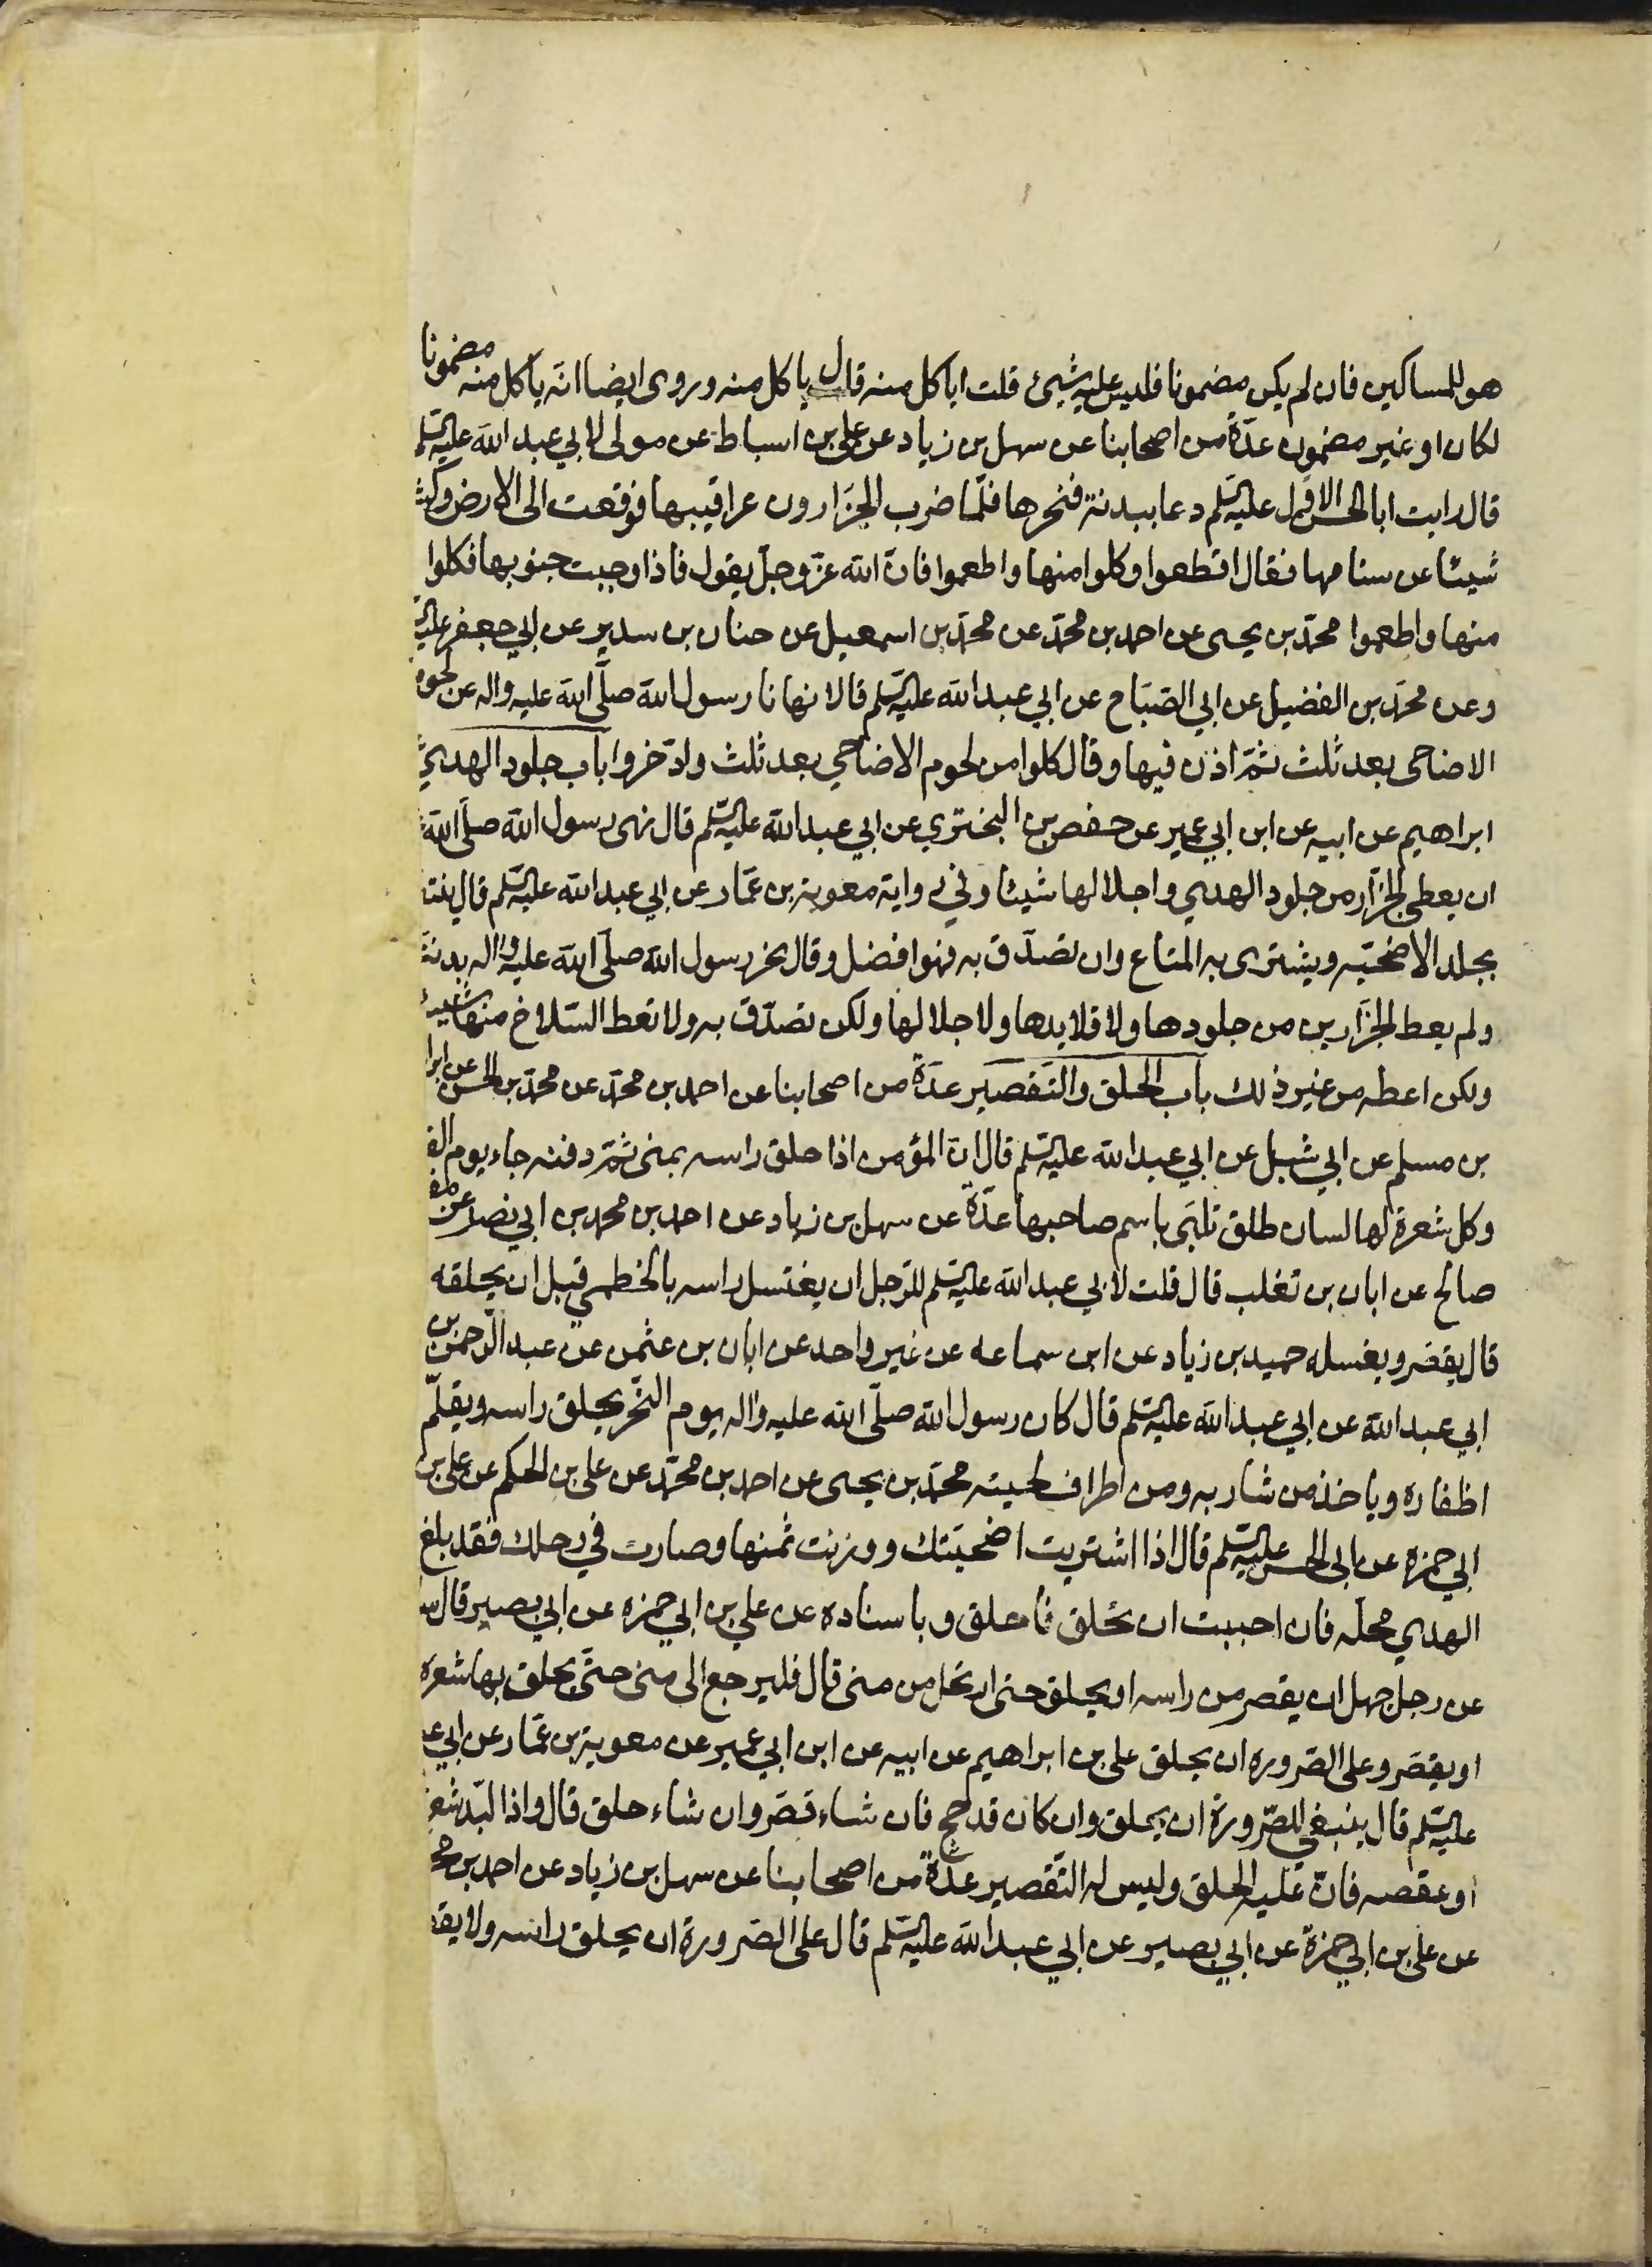 هو للمساكين فان لم يكن مضمونا فليس عليه شيئ قلت اياكل منه قال ياكل منه وروى ايضا انه ياكل منه مضمونا
لكان او غير مضمون عدّة من اصحابنا عن سهل بن زياد عن على بن اسباط عن مولى لابي عبد الله عليه السلم
قال رايت ابا الحسن الاوّل عليه السلم دعا ببدنة فنحرها فلمّا ضرب الجزّارون عراقيبها فوقعت الى الارض وكش
شيئا عن سنامها فقال اقطعوا وكلوا منها واطعموا فانّ الله عزّ وجلّ يقول فاذا وجبت جنوبها فكلوا
منها واطعموا محمّد بن يحيى عن احمد بن محمّد عن محمّد بن اسمعيل عن حنان بن سدير عن ابي جعفر عليه
وعن محمّد بن الفضيل عن ابي الصّبّاح عن ابي عبد الله عليه السلم قالا نهانا رسول الله صلّى الله عليه واله عن لحوم
الاضاحى بعد ثلث ثمّ اذن فيها وقال كلوا من لحوم الاضاحي بعد ثلث وادّخروا باب جلود الهدي
ابراهيم عن ابيه عن ابن ابي عمير عن حفص بن البختري عن ابي عبد الله عليه السلم قال نهى رسول الله صلّى الله
ان يعطى الجزّار من جلود الهدي واجلالها شيئا وفي رواية معوية بن عمّار عن ابي عبد الله عليه السلم قال ينتفع
بجلد الاضحيّه ويشترى به المتاع وان تصدّق به فهو افضل وقال نحر رسول الله صلّى الله عليه واله بدنة
ولم يعط الجزّارين من جلودها ولا قلايدها ولا جلالها ولكن تصدّق به ولا تعط السّلاخ منها شيئا
ولكن اعطه من غير ذلك باب الحلق والتّقصير عدّة من اصحابنا عن احمد بن محمّد عن محمّد بن الحسن عن ابرا
بن مسلم عن ابي شبل عن ابي عبد الله عليه السلم قال انّ المؤمن اذا حلق راسه بمنى ثمّ دفنه جاء يوم الق
وكل شعرة لها لسان طلق تلبّى باسم صاحبها عدّة عن سهل بن زياد عن احمد بن محمد بن ابي نصر عن مف
صالح عن ابان بن تغلب قال قلت لابي عبد الله عليه السلم للرّجل ان يغتسل راسه بالخطمي قبل ان يحلقه
قال يقصّر ويغسله حميد بن زياد عن ابن سماعه عن غير واحد عن ابان بن عثمن عن عبد الرّحمن بن
ابي عبد الله عن ابي عبد الله عليه السلم قال كان رسول الله صلّى الله عليه واله يوم النّحر يحلق راسه ويقلّم
اظفاره وياخذ من شاربه ومن اطراف لحيته محمّد بن يحيى عن احمد بن محمّد عن على بن الحكم عن على بن
ابي حمزه عن ابى الحسن عليه السلم قال اذا اشتريت اضحيّتك ووزنت ثمنها وصارت في رحلك فقد بلغ
الهدي محلّه فان احببت ان تحلق فاحلق وباسناده عن علي بن ابي حمزه عن ابي بصير قال سا
عن رجل جهل ان يقصر من راسه او يحلق حتى ارتحل من منى قال فليرجع الى منى حتّى يحلق بها شعره
او يقصّر وعلى الصّروره ان يحلق على بن ابراهيم عن ابيه عن ابن ابي عمير عن معوية بن عمّار عن ابي عبد
عليه السلم قال ينبغي للصّرورة ان يحلق وان كان قد حجّ فان شاء قصّر وان شاء حلق قال واذا لبّد شعر
او عقصه فانّ عليه الحلق وليس له التّقصير عدّة من اصحابنا عن سهل بن زياد عن احمد بن مح
عن على بن ابي حمزة عن ابي بصير عن ابي عبد الله عليه السلم قال على الصّرورة ان يحلق راسه ولا يقص